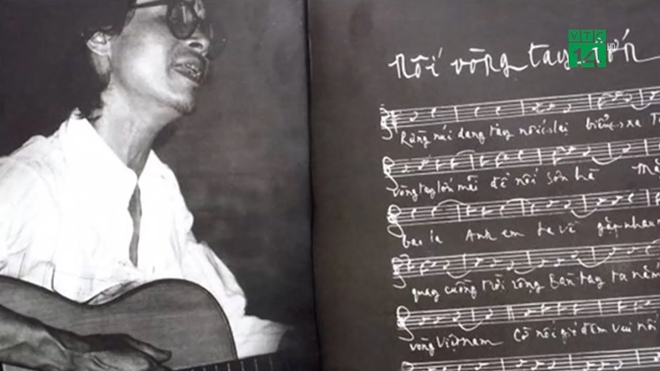 VTC
14
nối vòng tay lớn
Rừng núi dang tay nối lại biển xa T
vòng tay lớn mãi để nối sơn hà
bao la Anh em ta về gặp nhau
quay cuồng trời rộng bàn tay ta nắm
vòng Việt Nam Cờ nối gió đêm vui nối